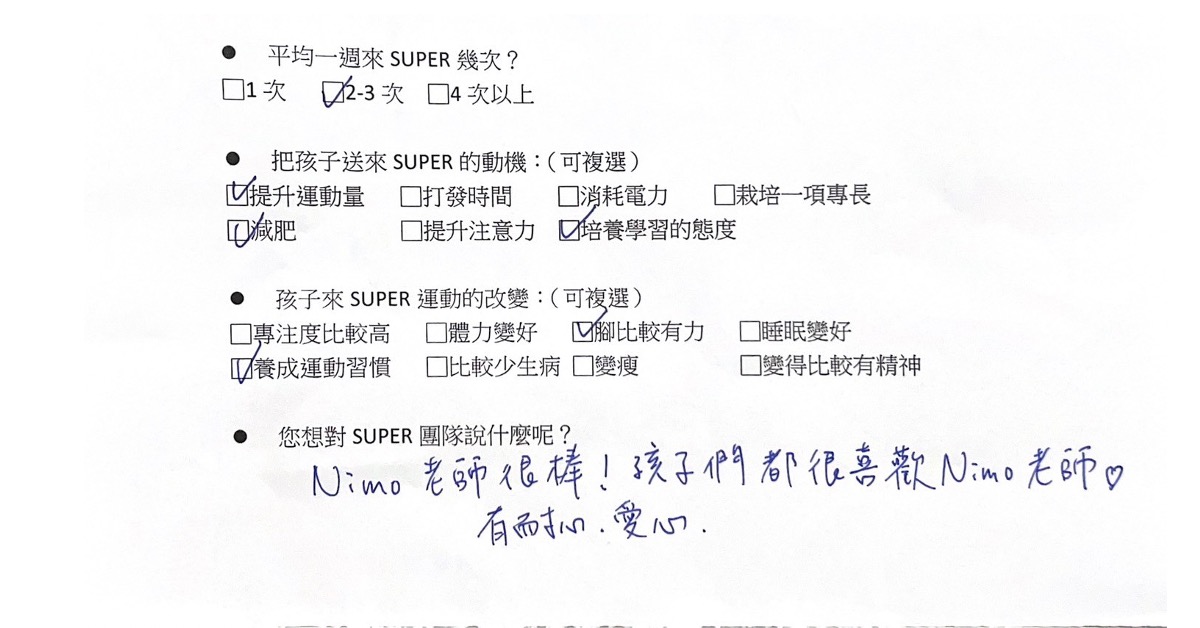 ● 平均一週來 SUPER 幾次？
□1 次 ☑2-3 次 □4 次以上
● 把孩子送來 SUPER 的動機：（可複選）
☑提升運動量 □打發時間 □消耗電力 □栽培一項專長
☑減肥 □提升注意力 ☑培養學習的態度
● 孩子來 SUPER 運動的改變：（可複選）
□專注度比較高 □體力變好 ☑腳比較有力 □睡眠變好
☑養成運動習慣 □比較少生病 □變瘦 □變得比較有精神
● 您想對 SUPER 團隊說什麼呢？
Nimo 老師很棒！孩子們都很喜歡 Nimo 老師♡
有耐心．愛心．